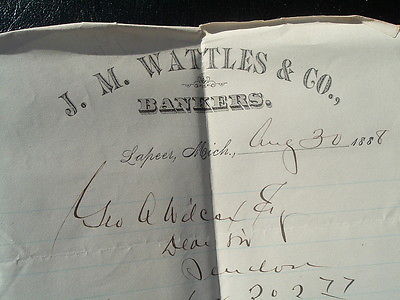 J. M. WATTLES & CO.,
BANKERS.
Lapeer, Mich., Aug 30 1888
Geo A Wilcox Esq
Dear Sir
I inclose
202 77